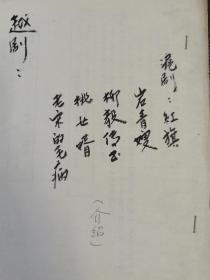 沪剧：红旗
岩青嫂
柳毅传书
桃女婿
老宋的毛病
（介绍）
越剧：